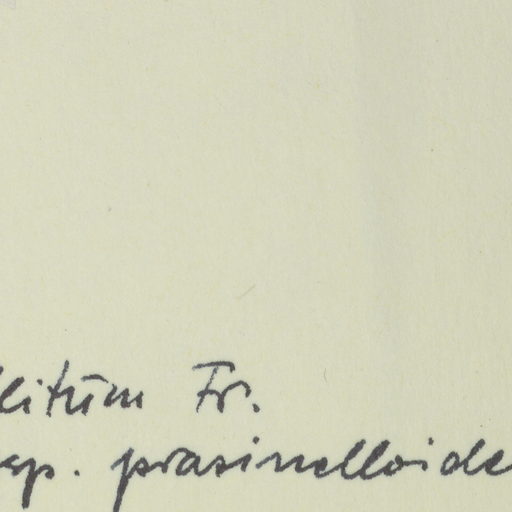 llitum Fr.
sp. prasinelloide